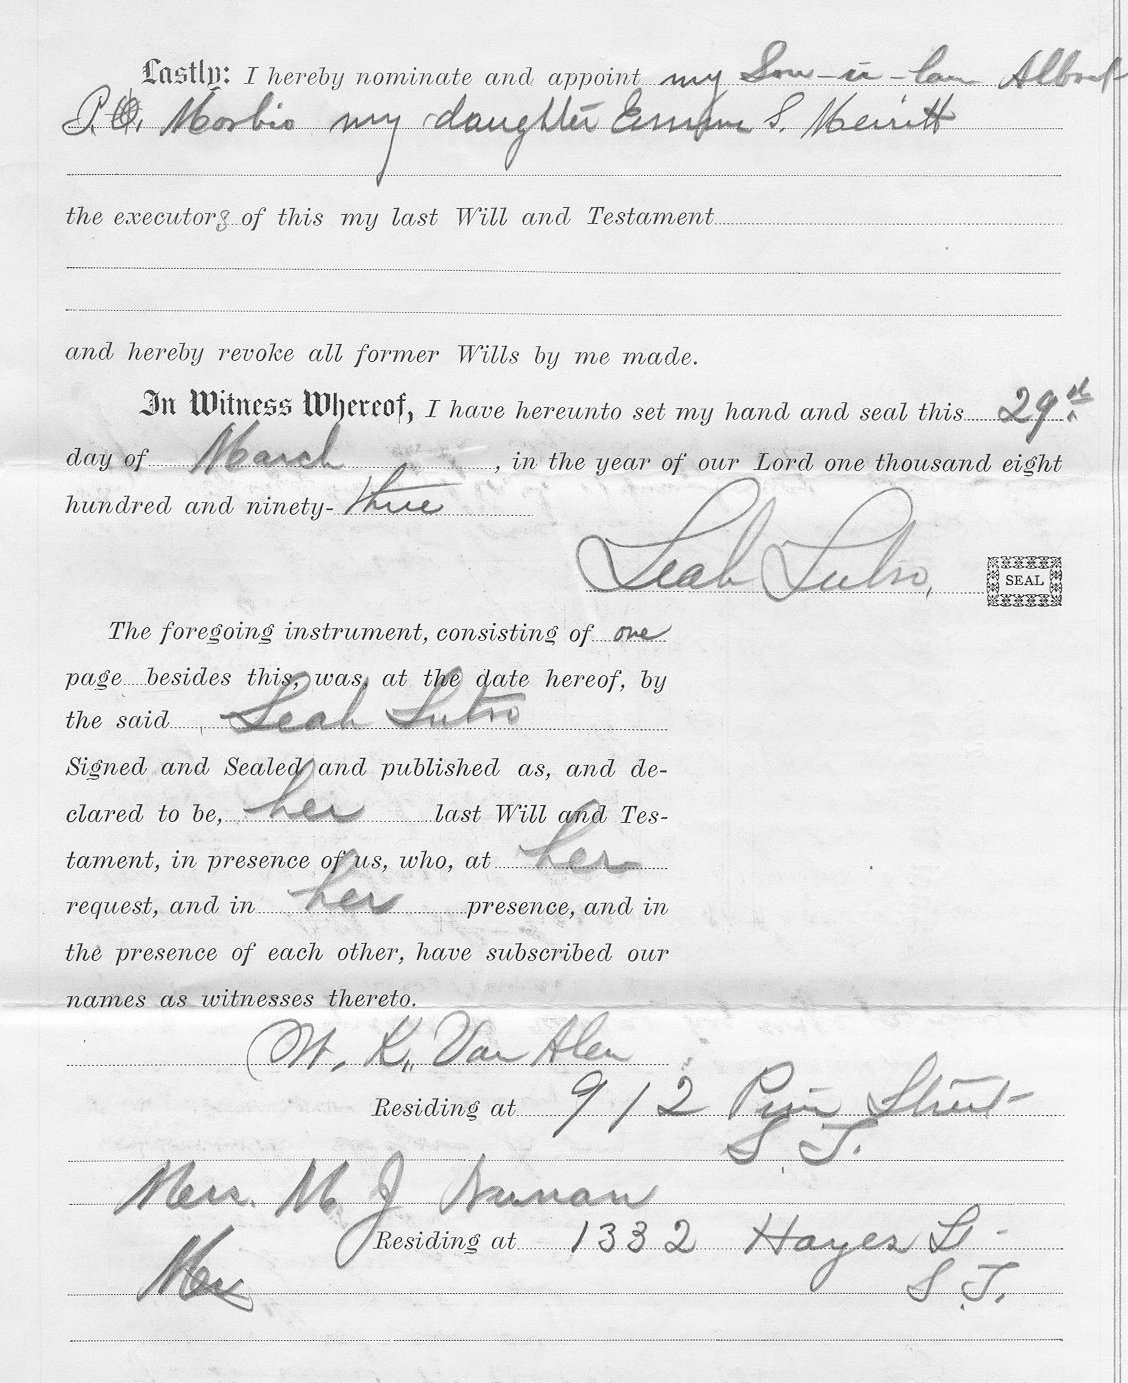 Lastly: I hereby nominate and appoint my Son-in-law Albert
P. Q. Morbio my daughter Emma S. Merritt
the executors of this my last Will and Testament
and hereby revoke all former Wills by me made.
In Witness Whereof, I have hereunto set my hand and seal this 29th
day of March , in the year of our Lord one thousand eight
hundred and ninety- three
Leah Sutro, SEAL
The foregoing instrument, consisting of one
page besides this, was, at the date hereof, by
the said Leah Sutro
Signed and Sealed and published as, and de-
clared to be, her last Will and Tes-
tament, in presence of us, who, at her
request, and in her presence, and in
the presence of each other, have subscribed our
names as witnesses thereto.
W. K. Van Alen
Residing at 912 Pine Street
S. F.
Mrs. M J Nunan
Residing at 1332 Hayes St
Mrs
S. F.